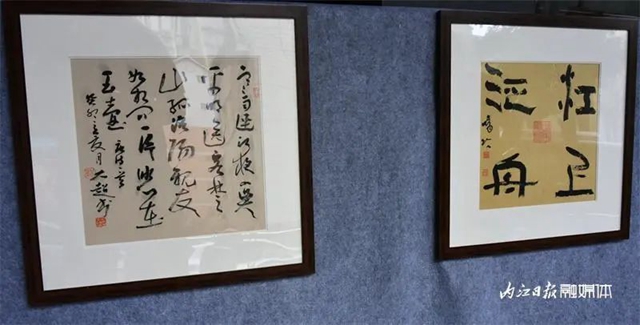 寒雨連江夜入吴
平明送客楚
山孤洛陽親友
如相问一片冰心在
玉壶
大超书
江上
泛舟
内江日报融媒体